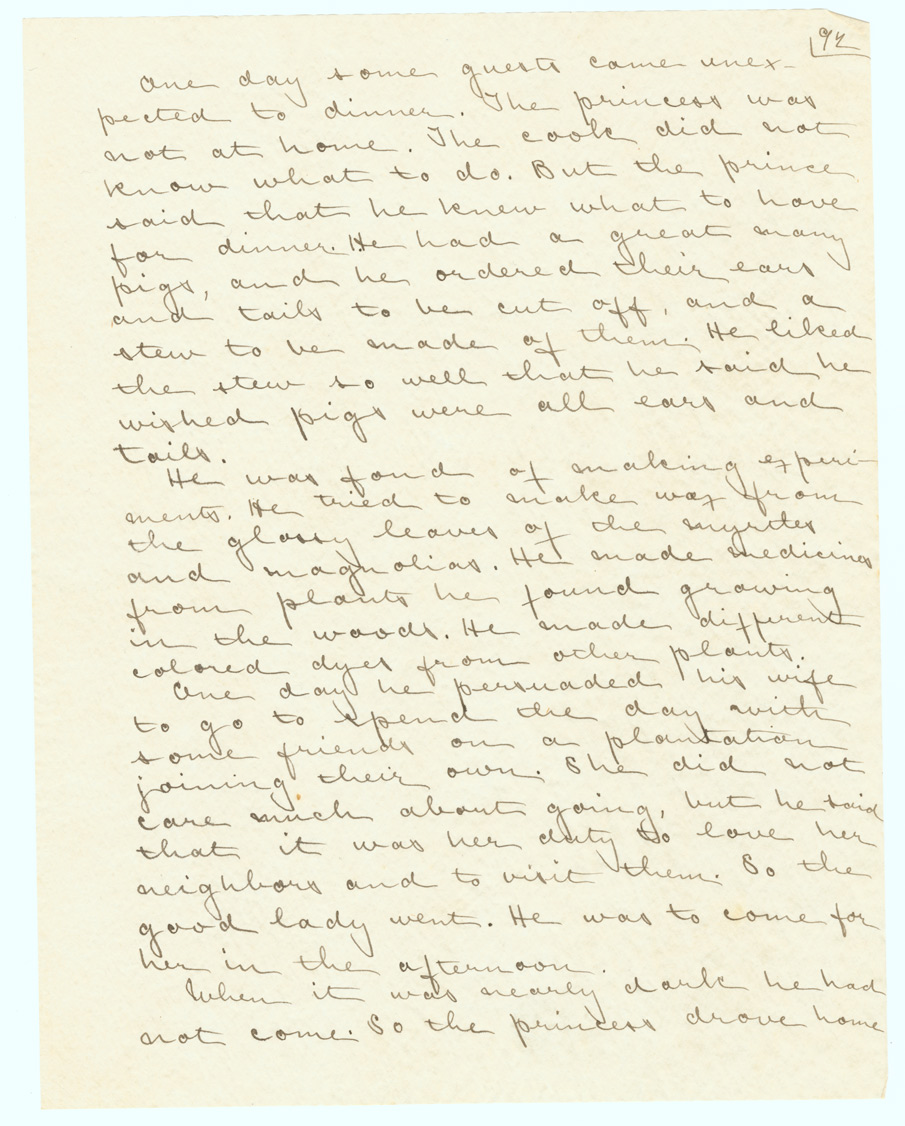 92
One day some guests came unex-
pected to dinner. The princess was
not at home. The cook did not
know what to do. But the prince
said that he knew what to have
for dinner. He had a great many
pigs, and he ordered their ears
and tails to be cut off, and a
stew to be made of them. He liked
the stew so well that he said he
wished pigs were all ears and
tails.
He was fond of making experi-
ments. He tried to make wax from
the glossy leaves of the myrtles
and magnolias. He made medicines
from plants he found growing
in the woods. He made different
colored dyes from other plants.
One day he persuaded his wife
to go to spend the day with
some friends on a plantation
joining their own. She did not
care much about going, but he said
that it was her duty to love her
neighbors and to visit them. So the
good lady went. He was to come for
her in the afternoon.
When it was nearly dark he had
not come. So the princess drove home